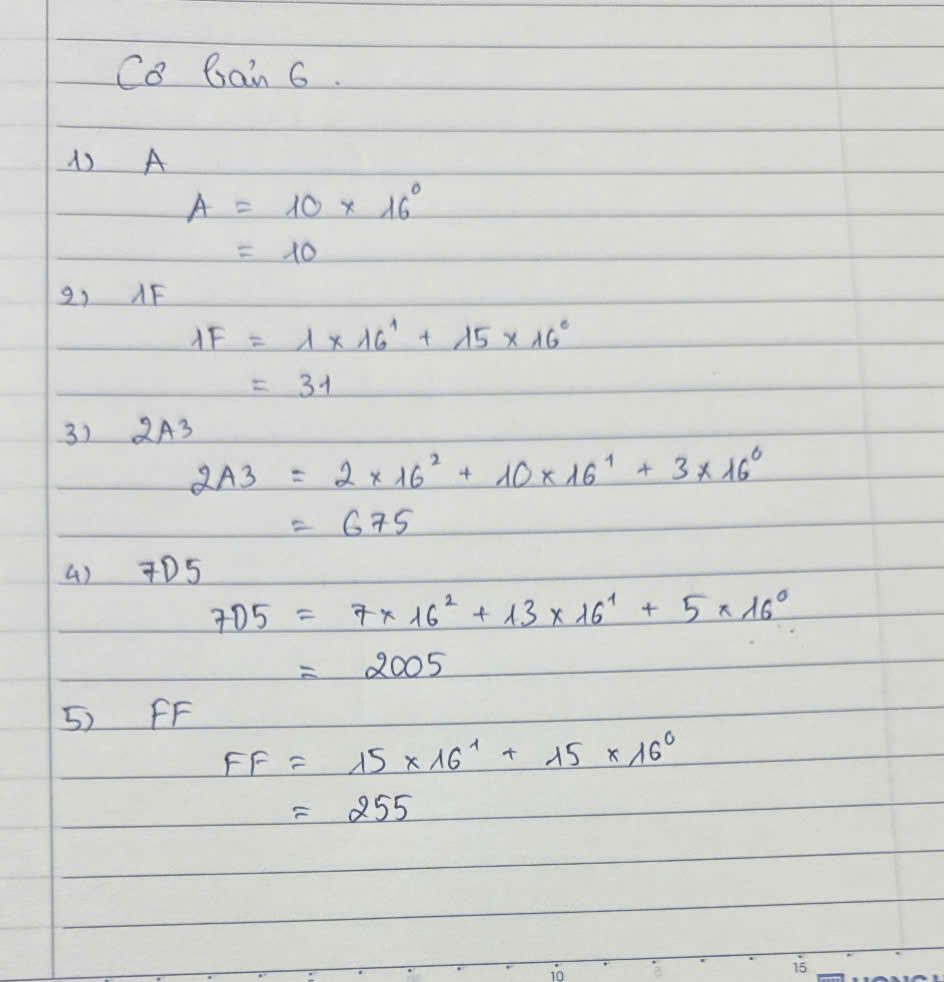 Cơ bản 6.
1) A
A = 10 × 16⁰
= 10
2) 1F
1F = 1 × 16¹ + 15 × 16⁰
= 31
3) 2A3
2A3 = 2 × 16² + 10 × 16¹ + 3 × 16⁰
= 675
4) 7D5
7D5 = 7 × 16² + 13 × 16¹ + 5 × 16⁰
= 2005
5) FF
FF = 15 × 16¹ + 15 × 16⁰
= 255
10 15